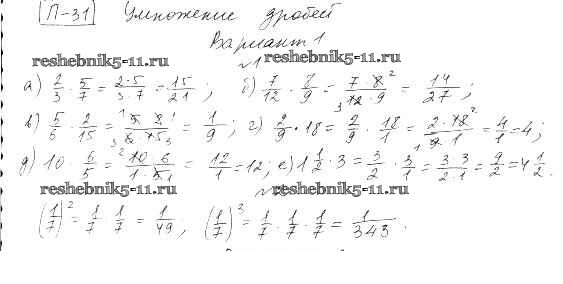 П-31 Умножение дробей
Вариант 1
№1
reshebnik5-11.ru reshebnik5-11.ru
а) 2/3 · 5/7 = 2·5/3·7 = 15/21; б) 7/12 · 8/9 = 7·8²/₃12·9 = 14/27;
reshebnik5-11.ru reshebnik5-11.ru
в) 5/6 · 2/15 = ¹5·2¹/₃6·15₃ = 1/9; г) 2/9 · 18 = 2/9 · 18/1 = 2·18²/₁9·1 = 4/1 = 4;
д) 10 · 6/5 = ²10·6/1·5₁ = 12/1 = 12; е) 1 1/2 · 3 = 3/2 · 3/1 = 3·3/2·1 = 9/2 = 4 1/2.
reshebnik5-11.ru №2 reshebnik5-11.ru
(1/7)² = 1/7 · 1/7 = 1/49; (1/7)³ = 1/7 · 1/7 · 1/7 = 1/343.